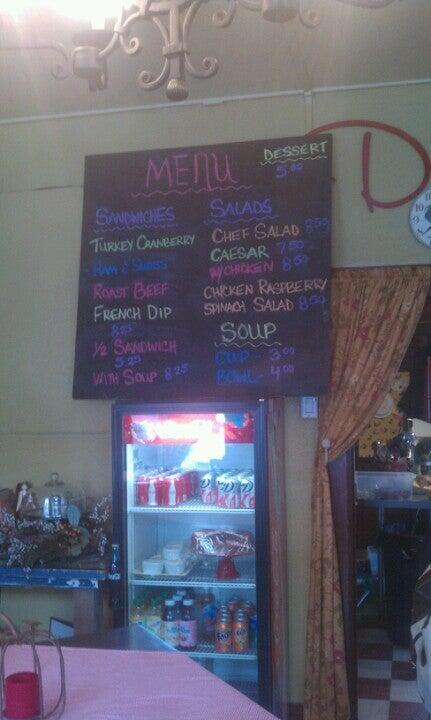 MENU
DESSERT
5.00
SANDWICHES
TURKEY CRANBERRY
HAM & SWISS
ROAST BEEF
FRENCH DIP
8.25
1/2 SANDWICH
5.25
WITH SOUP 8.25
SALADS
CHEF SALAD 8.50
CAESAR 7.50
W/CHICKEN 8.50
CHICKEN RASPBERRY
SPINACH SALAD 8.50
SOUP
CUP - 3.00
BOWL - 4.00
D
Fanta